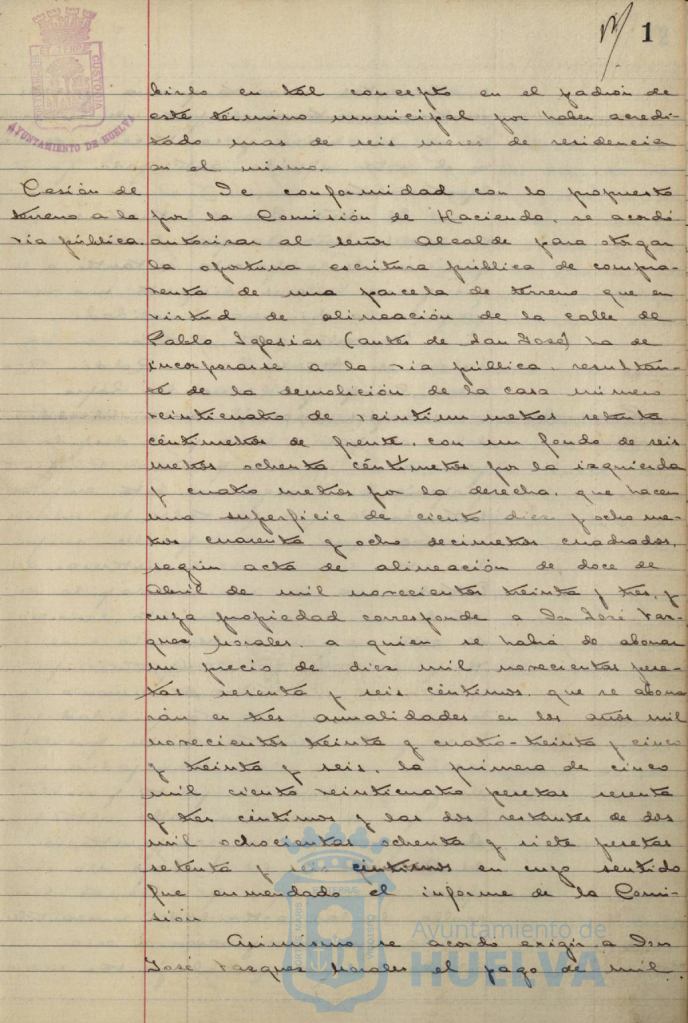 1
AYUNTAMIENTO DE HUELVA
birlo en tal concepto en el padrón de
este término municipal por haber acredi-
tado mas de seis meses de residencia
en el mismo.
Cesión de
terreno a la
via pública.
De conformidad con lo propuesto
por la Comisión de Hacienda, se acordó
autorizar al señor Alcalde para otorgar
la oportuna escritura pública de compra-
venta de una parcela de terreno que en
virtud de alineación de la calle de
Pablo Iglesias (antes de San José) ha de
incorporarse a la via pública, resultan-
te de la demolición de la casa número
veinticuatro de veintiun metros setenta
céntimetros de frente, con un fondo de seis
metros ochenta céntimetros por la izquierda
y cuatro metros por la derecha, que hacen
una superficie de ciento diez y ocho me-
tros cuarenta y ocho decimetros cuadrados,
según acta de alineación de doce de
Abril de mil novecientos treinta y tres, y
cuya propiedad corresponde a Don José Vaz-
quez Morales, a quien se habrá de abonar
un precio de diez mil novecientas pese-
tas sesenta y seis céntimos, que se abona
rán en tres anualidades en los años mil
novecientos treinta y cuatro-treinta y cinco
y treinta y seis, la primera de cinco
mil ciento veinticuatro pesetas sesenta
y tres céntimos y las dos restantes de dos
mil ochocientas ochenta y siete pesetas
setenta y seis céntimos en cuyo sentido
fue enmendado el informe de la Comi-
sión
Asimismo se acordo exigir a Don
José Vazquez Morales el pago de mil
Ayuntamiento de
HUELVA